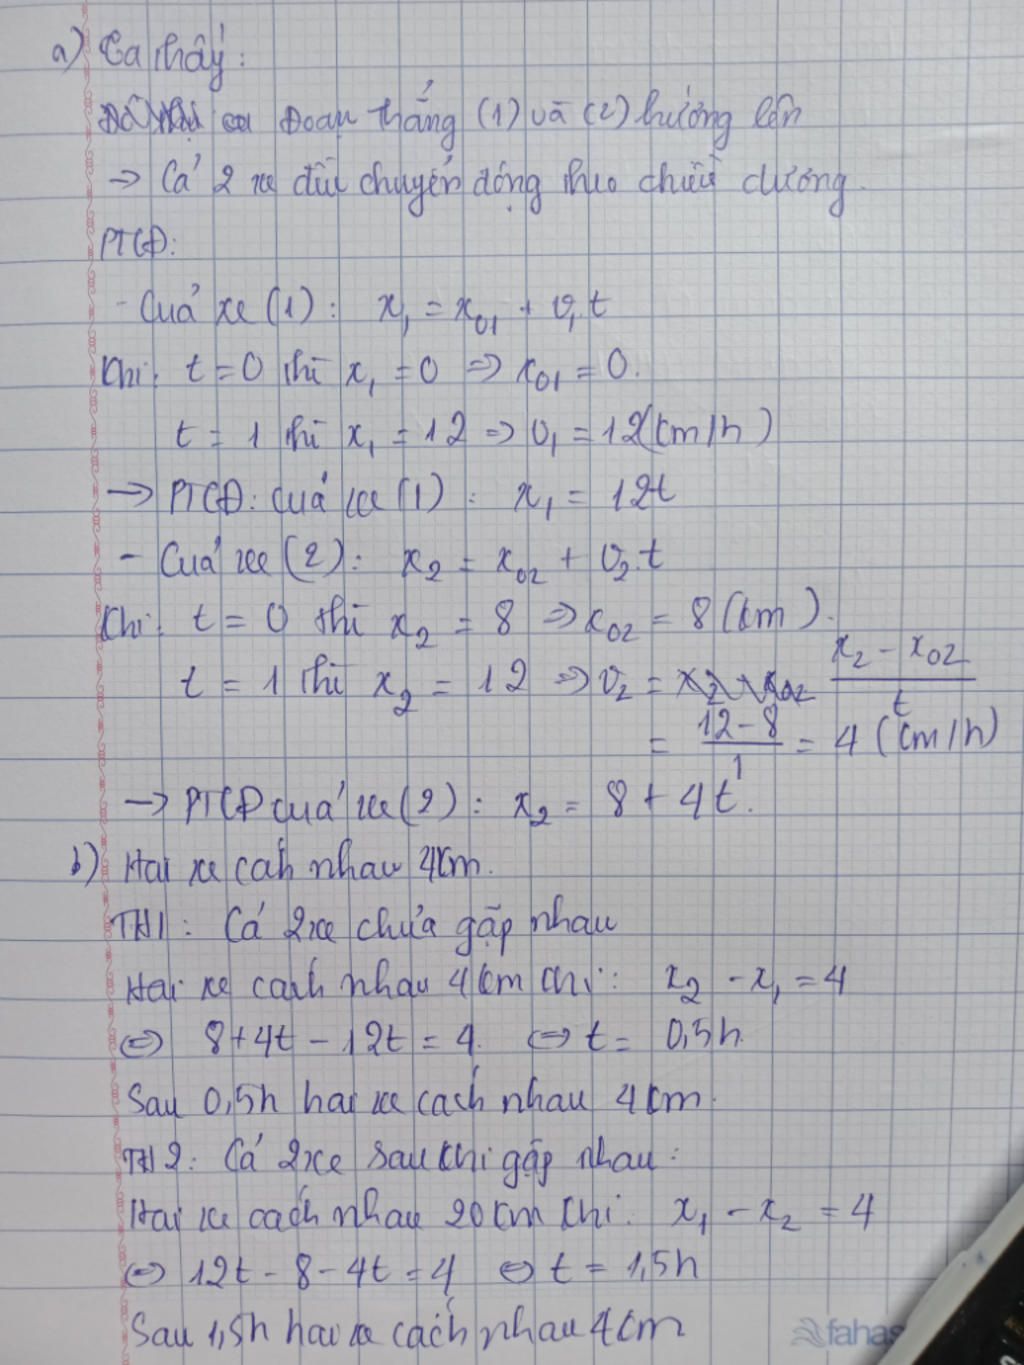 a) Ta thấy:
Đoạn thẳng (1) và (2) hướng lên
→ Cả 2 xe đều chuyển động theo chiều dương.
PTCĐ:
- Của xe (1): x₁ = x₀₁ + v₁.t
Khi: t = 0 thì x₁ = 0 => x₀₁ = 0.
t = 1 thì x₁ = 12 => v₁ = 12 (km/h)
→ PTCĐ: của xe (1): x₁ = 12t
- Của xe (2): x₂ = x₀₂ + v₂.t
Khi: t = 0 thì x₂ = 8 => x₀₂ = 8 (km).
t = 1 thì x₂ = 12 => v₂ = (x₂ - x₀₂)/t
= (12 - 8)/1 = 4 (km/h)
→ PTCĐ của xe (2): x₂ = 8 + 4t.
b) Hai xe cách nhau 4km.
TH1: Cả 2 xe chưa gặp nhau
Hai xe cách nhau 4km khi: x₂ - x₁ = 4
<=> 8 + 4t - 12t = 4. <=> t = 0,5h.
Sau 0,5h hai xe cách nhau 4km.
TH2: Cả 2 xe sau khi gặp nhau:
Hai xe cách nhau 20km khi: x₁ - x₂ = 4
<=> 12t - 8 - 4t = 4 <=> t = 1,5h
Sau 1,5h hai xe cách nhau 4km
fahas